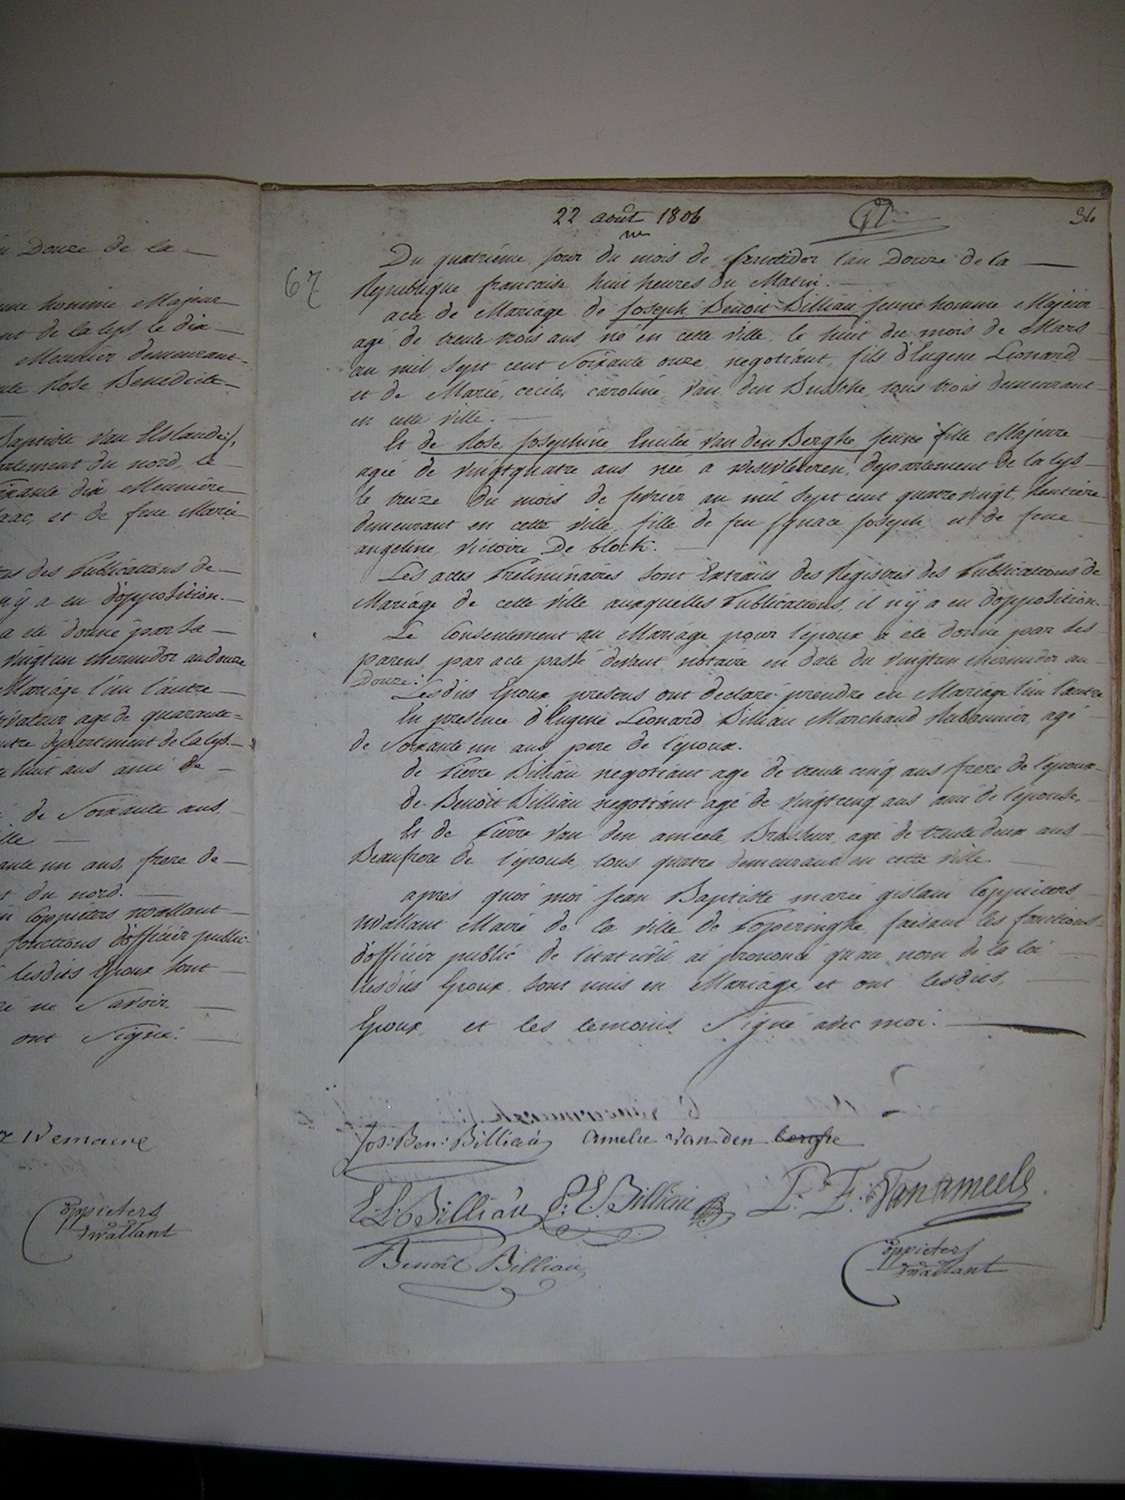 n Douze de la
une homme Majeur
nt de la Lys le dix
Meunier demeurant
nte Rose Benedicte
Baptiste Van Elslande,
artement du nord, le
ixante dix Meunière
aac, et de feue Marie
tes des Publications de
n'y a eu d'opposition.
a été donné par sa
vingtun thermidor an douze
Mariage l'un l'autre
tivateur agé de quarante
utre departement de la Lys
te huit ans ami de
de Soixante ans,
lle
ante un ans, frere de
t du nord.
n Coppieters Wallant
fonctions d'officier public
lesdits Epoux sont
ré ne Savoir
ont Signé.
Wemaere
Coppieters
Wallant
22 août 1806
36
67
Du quatrième jour du mois de fructidor l'an Douze de la
Republique francaise huit heures du Matin.
acte de Mariage de Joseph Benoit Billiau jeune homme Majeur
agé de trente trois ans, né en cette ville le huit du mois de Mars
an mil Sept cent Soixante onze negotiant, fils d'Eugene Leonard
et de Marie, cecile, caroline Van den Bussche tous trois demeurant
en cette ville.
Et de Rose Josephine Emilie Van den Berghe jeune fille Majeure
agée de vingtquatre ans née a Westvleteren, departement de la Lys
le treize du mois de fevrier an mil Sept cent quatre vingt, Rentière
demeurant en cette ville, fille de feu Ignace Joseph et de feue
angeline Victoire De block.
Les actes Preliminaires sont Extraits des Registres des Publications de
Mariage de cette ville auxquelles Publications il n'y a eu d'opposition.
Le Consentement au Mariage pour l'epoux a été donné par ses
parens par acte passé devant notaire en date du vingtun thermidor an
Douze.
Lesdits Epoux presens ont declaré prendre en Mariage l'un l'autre
En presence d'Eugene Leonard Billiau Marchand Rubannier, agé
de Soixante un ans, pere de l'epoux.
de Pierre Billiau negotiant agé de trente cinq ans frere de l'epoux
de Benoit Billiau negotiant agé de vingt cinq ans ami de l'epouse,
Et de Pierre Van den ameele Brasseur agé de trente deux ans
Beaufrere de l'epouse tous quatre demeurant en cette ville.
apres quoi moi Jean Baptiste marie gislain Coppieters
Wallant Maire de la ville de Poperinghe, faisant les fonctions
d'officier public de l'etat civil ai prononcé qu'au nom de la loi
lesdits Epoux sont unis en Mariage et ont lesdits,
Epoux et les temoins Signé avec moi.
Jos: Ben: Billiau Amelie Van den berghe
E. L. Billiau P: E: Billiau P. F: Van ameele
Benoit Billiau
Coppieters
Wallant